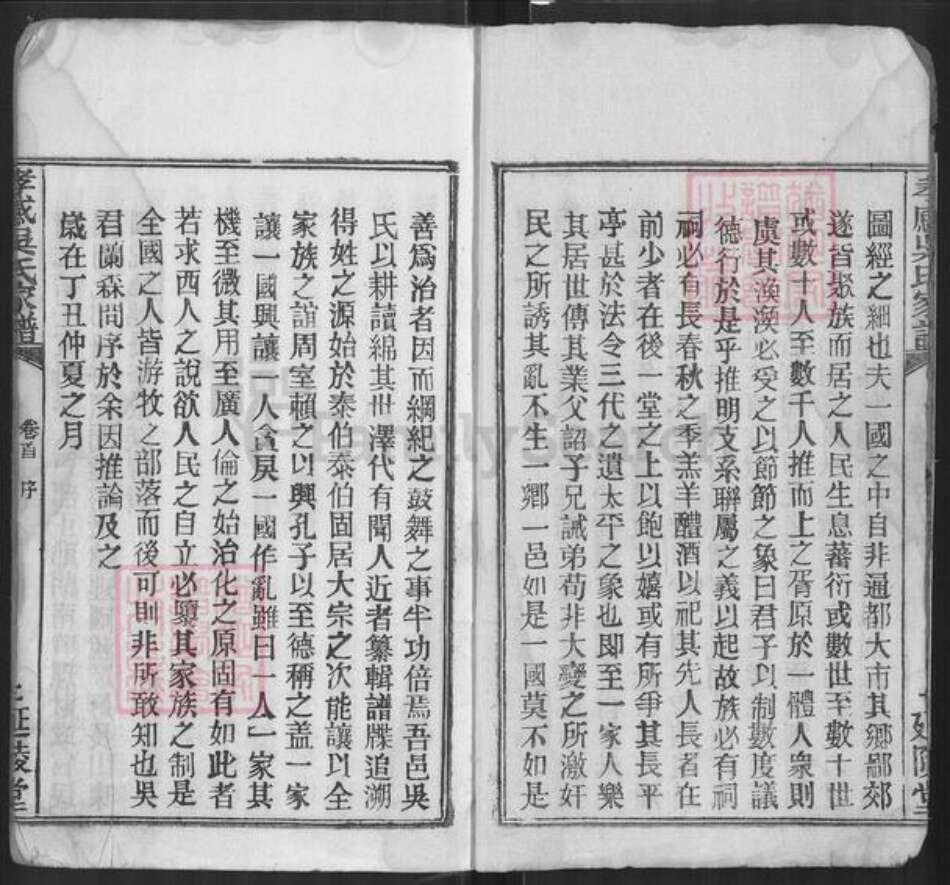 圖經之細也夫一國之中自非通都大市其鄉鄙郊
遂皆聚族而居之人民生息蕃衍或數世至數十世
或數十人至數千人推而上之胥原於一體人衆則
虞其渙渙必受之以節節之象曰君子以制數度議
德行於是乎推明支系聯屬之義以起故族必有祠
祠必有長春秋之季羔羊醴酒以祀其先人長者在
前少者在後一堂之上以飽以嬉或有所爭其長平
亭甚於法令三代之遺太平之象也卽至一家人樂
其居世傳其業父詔子兄誡弟苟非大變之所激奸
民之所誘其亂不生一鄉一邑如是一國莫不如是
延陵堂
孝感吳氏家譜
卷首 序
善爲治者因而綱紀之鼓舞之事半功倍焉吾邑吳
氏以耕讀綿其世澤代有聞人近者纂輯譜牒追溯
得姓之源始於泰伯泰伯固居大宗之次能讓以全
家族之誼周室賴之以興孔子以至德稱之蓋一家
讓一國興讓一人貪戾一國作亂雖曰一人一家其
機至微其用至廣人倫之始治化之原固有如此者
若求西人之說欲人民之自立必隳其家族之制是
全國之人皆游牧之部落而後可則非所敢知也吳
君蘭森問序於余因推論及之
歲在丁丑仲夏之月
延陵堂